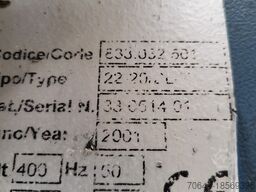 Codice/Code 833.032.501
Tipo/Type 22-20
Mat./Serial N. 33 0614 01
Anno/Year: 2001
lt 400 Hz 50
CE